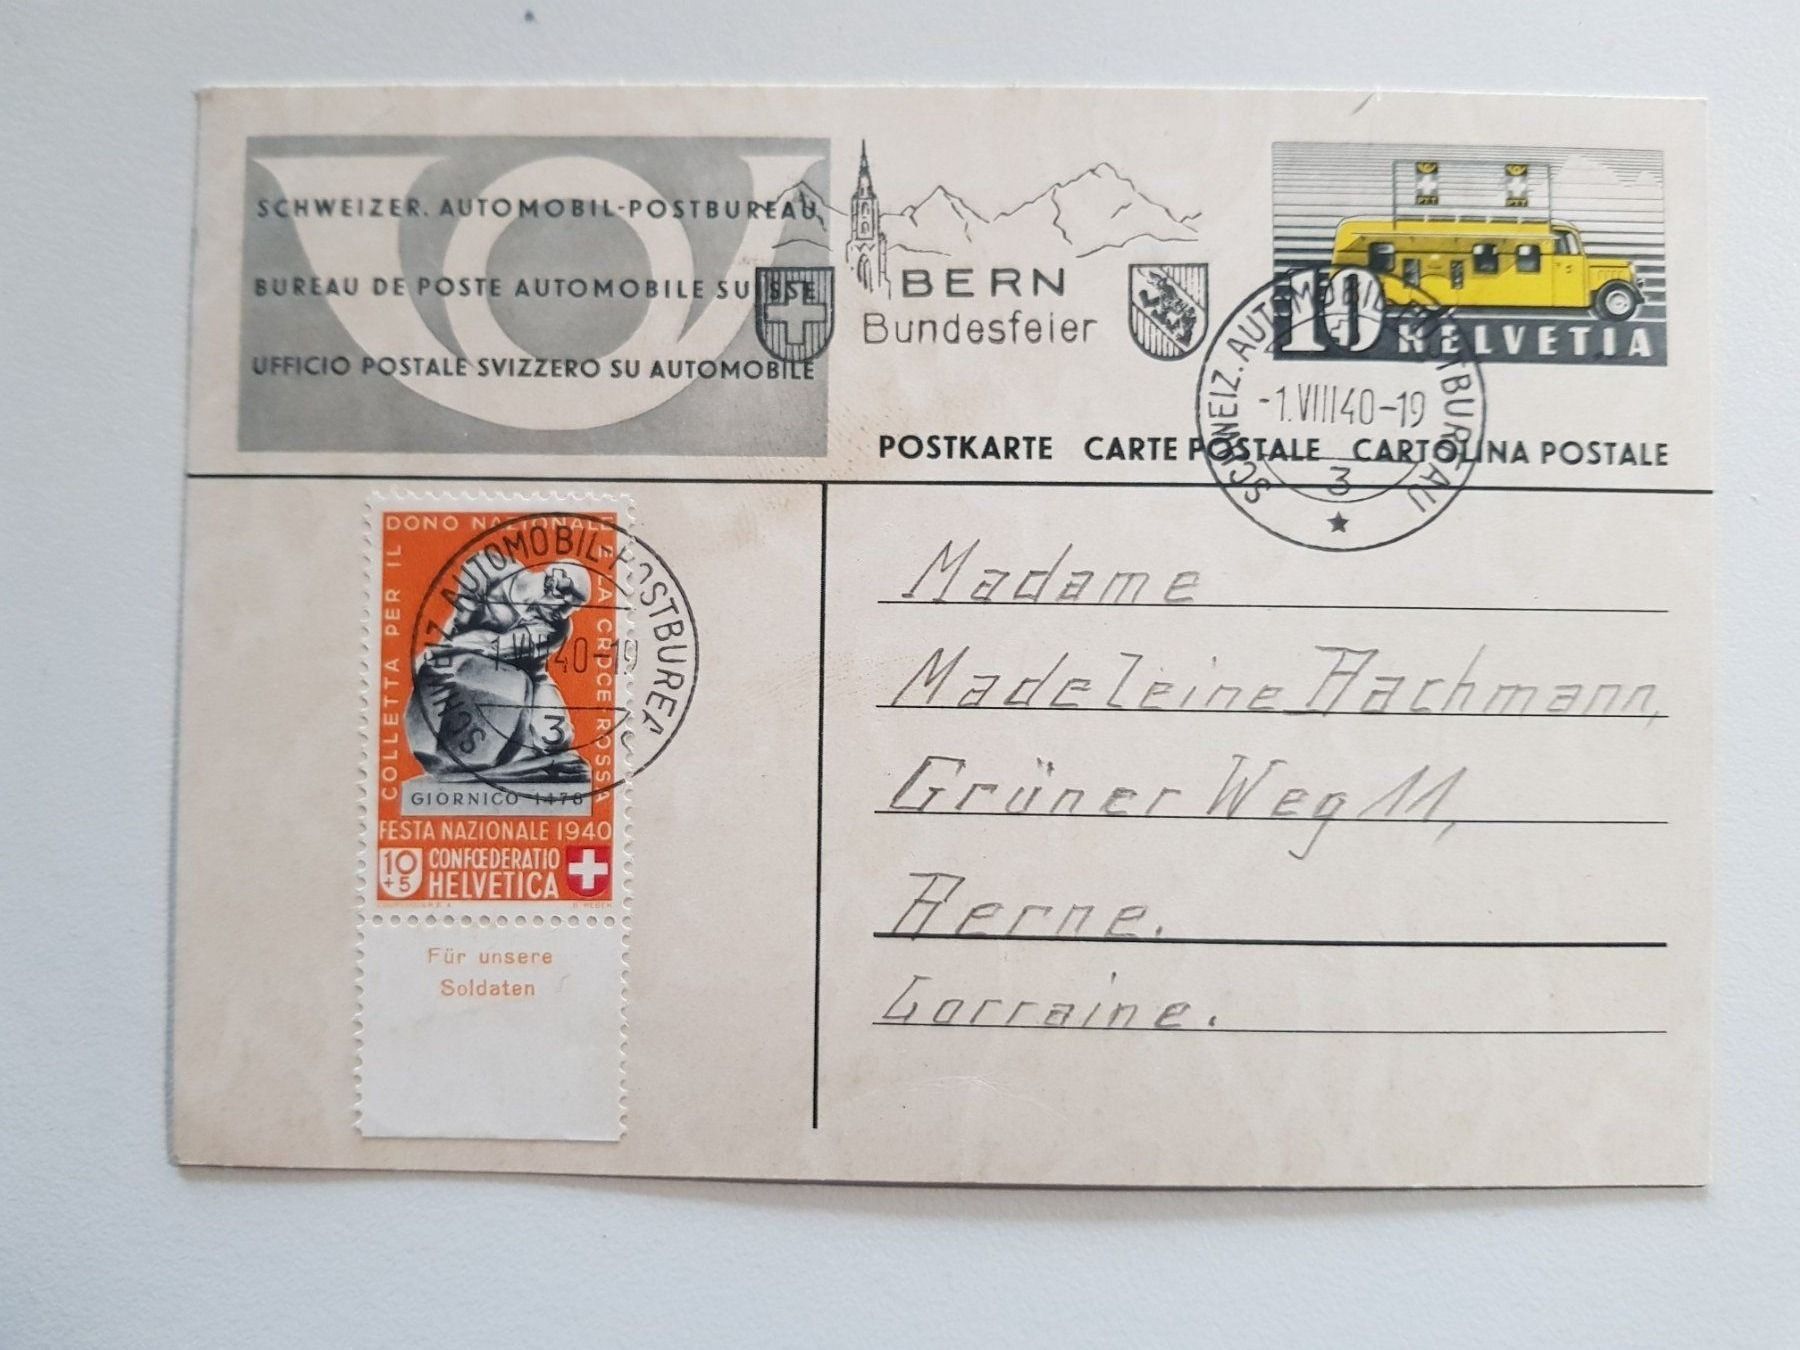 SCHWEIZER. AUTOMOBIL-POSTBUREAU
BUREAU DE POSTE AUTOMOBILE SUISSE
UFFICIO POSTALE SVIZZERO SU AUTOMOBILE
BERN
Bundesfeier
PTT PTT
10 HELVETIA
SCHWEIZ. AUTOMOBIL-POSTBUREAU
-1.VIII40-19
3
POSTKARTE CARTE POSTALE CARTOLINA POSTALE
COLLETTA PER IL DONO NAZIONALE E LA CROCE ROSSA
SCHWEIZ. AUTOMOBIL-POSTBUREA
1.VIII40-19
3
GIORNICO 1478
FESTA NAZIONALE 1940
10+5
CONFŒDERATIO
HELVETICA
Für unsere
Soldaten
Madame
Madeleine Bachmann,
Grüner Weg 11,
Berne.
Lorraine.